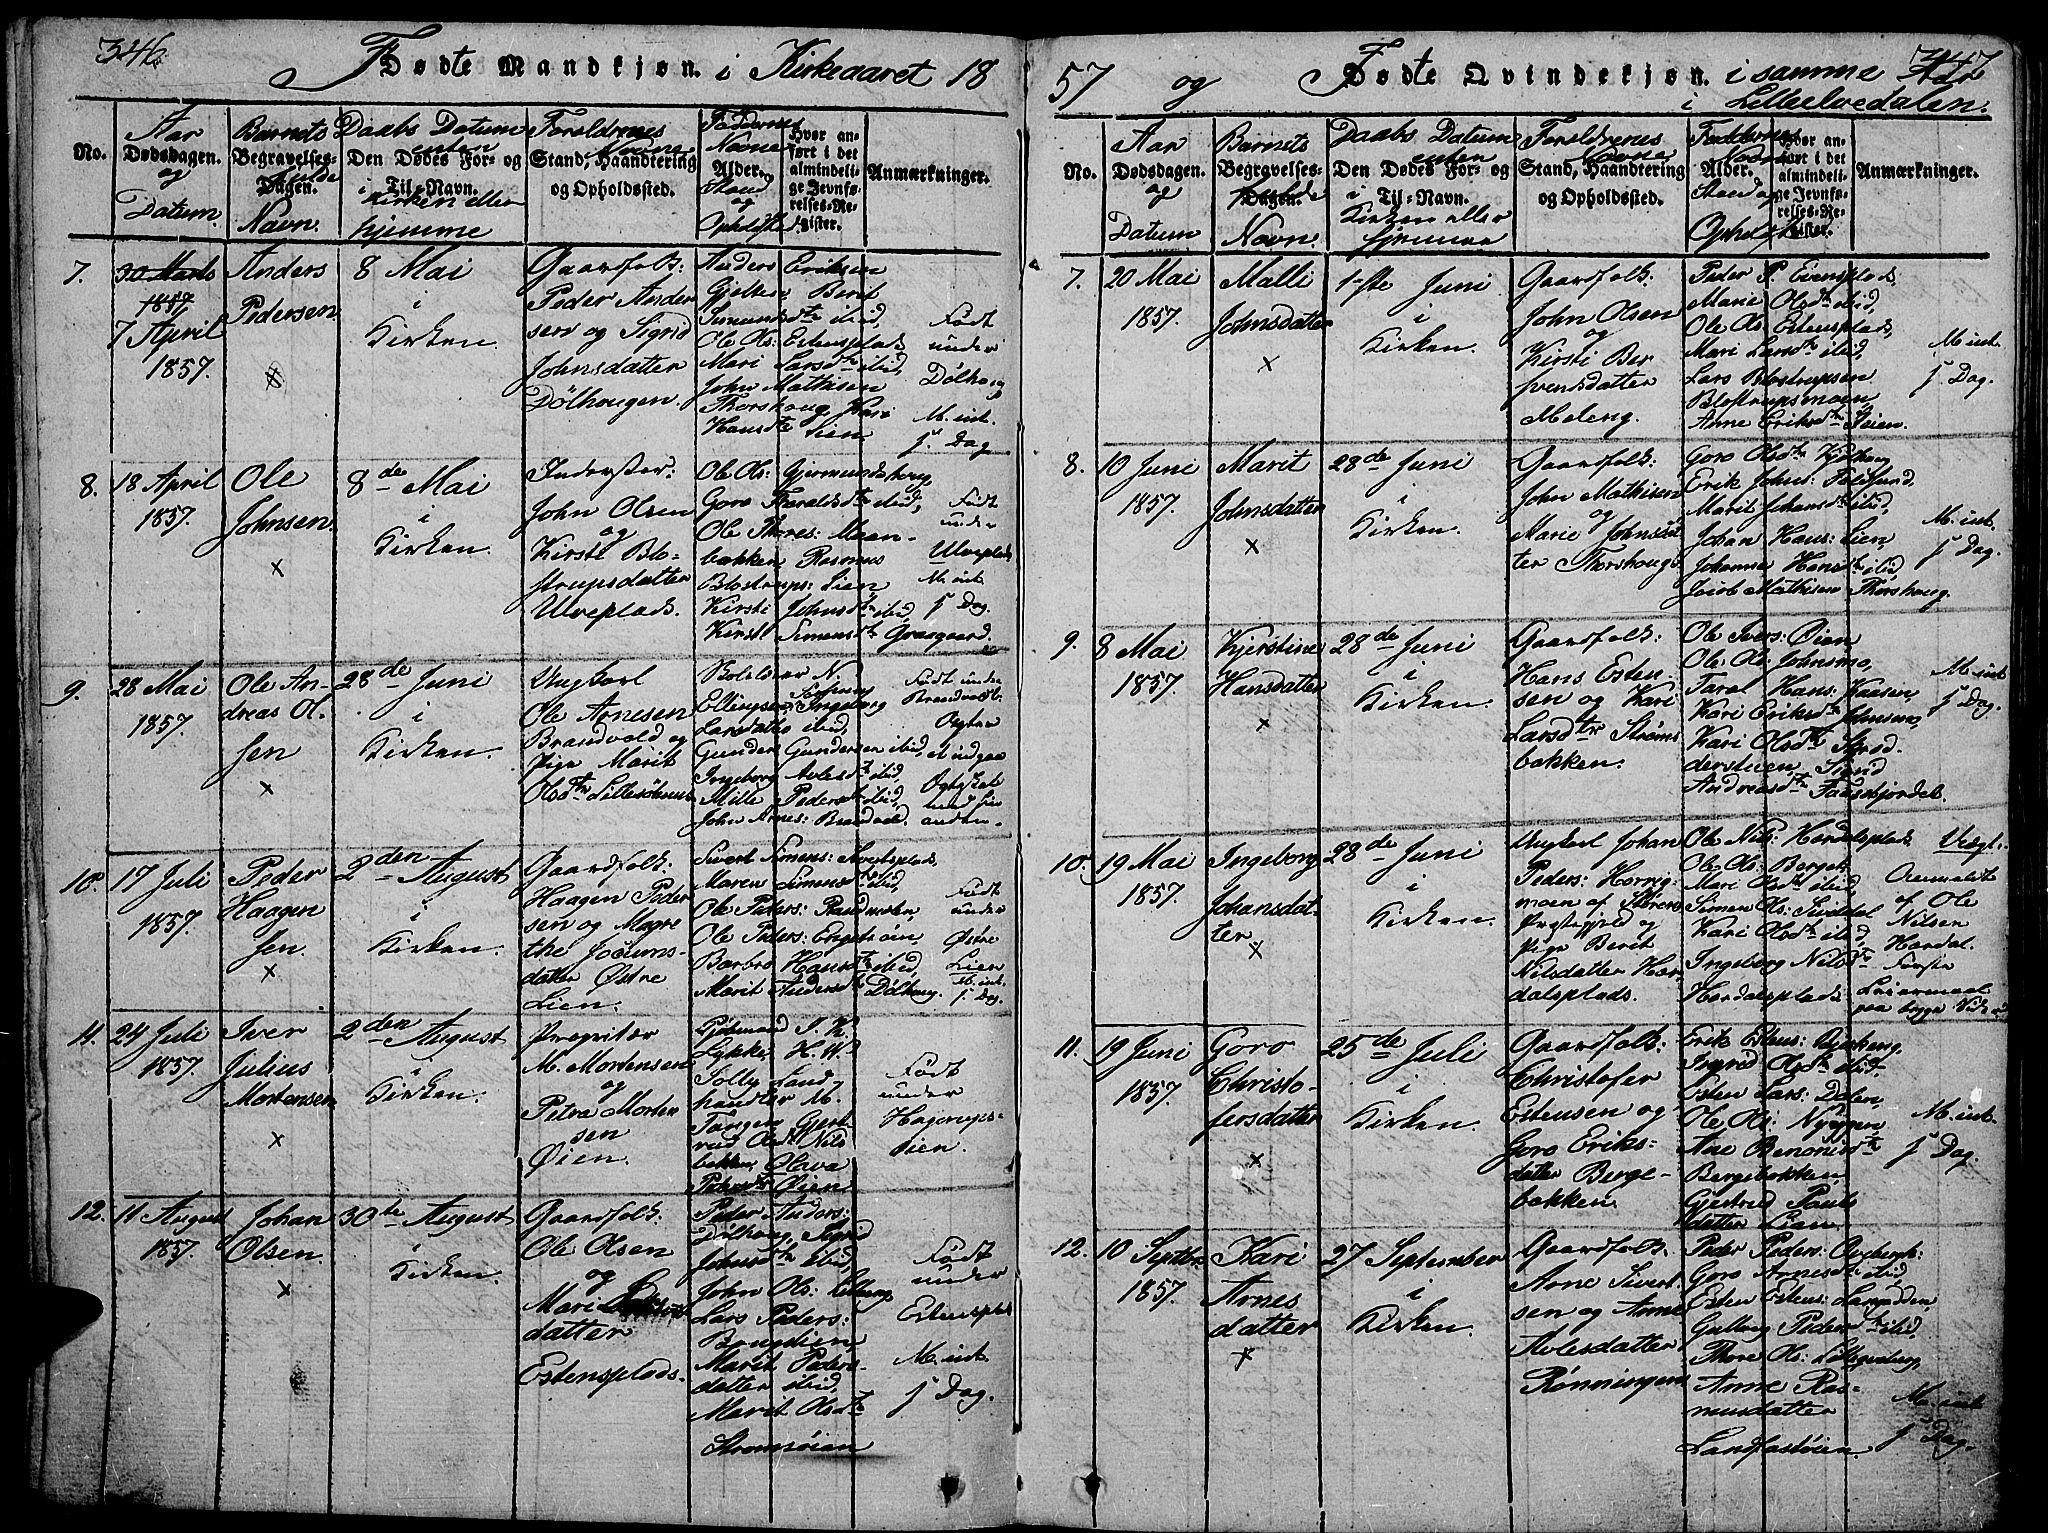 346.
Fødte Mandkjøn. i Kirkeaaret 18
No.
Aar
Dødsdagen.
og
Datum.
Barnets
Begravelses-
fulde
Dagen.
Navn.
Daabs Datum
enten
Den Dødes For- og
i Til-Navn.
Kirken eller
hjemme
Forældrenes
Navne
Stand, Haandtering
og Opholdssted.
Faddernes
Navne
Alder.
Stand
og
Opholdsst.
Hvor an-
ført i det
almindeli-
ge Jevnfø-
relses-Re-
gister.
Anmærkninger.
7.
30 Marts
1857
7 April
1857.
Anders
Pedersen
8 Mai
i
Kirken.
Gaardfolk:
Peder Ander
sen og Sigrid
Johnsdatter
Dölhougen.
Anders Eriksen
Gjelten, Berit
Simunsdtr ibid,
Ole Ols: Estensplads
Mari Larsdtr ibid,
John Mathisen
Thorshoug Kari
Hansdtr Lien
Født
under
Dølhoug
M. int.
j Dag
8.
18 April
1857.
Ole
Johnsen
×
8de Mai
i
Kirken.
Inderster:
John Olsen
og
Kirsti Blo-
strupsdatter
Ulveplads.
Ole Ols: Gjermundshoug
Goro Haraldsdtr ibid,
Ole Thores: Moan-
bakken Rasmus
Blostrups: Lien
Kirsti Johnsdtr ibid,
Kirsti Simensdtr Græsgaard.
Født
under
Ulveplads
M. int.
j Dag.
9.
28 Mai
1857.
Ole An-
dreas Ol-
sen
×
28de Juni
i
Kirken.
Ungkarl
Ole Arnesen
Brandvold og
Pige Marit
Olsdtr Lillesöhnes
Ellingsen, Ingeborg
Larsdatter ibid,
Gunder Gundersen ibid,
Ingeborg Avlesdtr ibid,
Mille Pedersdtr ibid,
John Arnes: Brandvold.
Født under
Brandvold.
Agter
at indgaa
Ægteskab
med hin
anden.
10.
17 Juli
1857.
Peder
Haagen
sen.
×
2den August
i
Kirken.
Gaardfolk:
Haagen Peder
sen og Magre
the Jocums-
datter Østre
Lien.
Sivert Simens:
Maren Simensdtr ibid,
Ole Peders: Randmælen
Ole Peders: Engetröien,
Barbro Hansdtr ibid,
Marit Andersdtr Dölhoug.
Født
under
Østre
Lien
M. int.
j Dag.
11.
24 Juli
1857.
Iver
Julius
Mortensen
×
2den August
i
Kirken.
Proprietær
M. Mortensen
og
Petra Morten
sen
Øien.
Gjöbmand J. H.
Lykke, H. W.
Jolly Land-
handler M.
Tangen Gjert-
rud Olsdtr Nils
bakken Olava
Pedersdtr Øien
Født
under
Hagerups-
øien.
12.
11 August
1857.
Johan
Olsen.
×
30te August
i
Kirken.
Gaardfolk:
Ole Olsen
og
Mari
datter
Estensplads.
Peder Anders:
Dölhoug, Sigrid
Johnsdtr ibid,
John Ols:
Lars Peders:
Marit Peders-
datter ibid,
Marit Olsdtr
Stromsöien
Født
under
Estensplads
M. int.
j Dag.
347
57 og Fødte Qvindekjøn. i samme Aar
i Lilleelvedalen.
No.
Aar
Dødsdagen.
og
Datum
Barnets
Begravelses-
fulde
Dagen.
Navn.
Daabs Datum
enten
Den Dødes For- og
i
Til-Navn.
Kirken eller
hjemme
Forældrenes
Navne
Stand, Haandtering
og Opholdssted.
Faddernes
Navne
Alder.
Stand og
Opholdsst.
Hvor an-
ført i det
almindeli-
ge Jevnfø-
relses-Re-
gister.
Anmærkninger.
7.
20 Mai
1857.
Malli
Johnsdatter
×
1ste Juni
i
Kirken.
Gaardfolk:
John Olsen
og
Kirsti Ber
svendsdatter
Meleng.
Peder P. Evensplads,
Marie Olsdtr ibid,
Ole Ols: Estensplads,
Mari Larsdtr ibid,
Lars Blostrupsen
Blostrupsmoen,
Anne Eriksdtr Steien.
M. int.
j Dag.
8.
10 Juni
1857.
Marit
Johnsdatter
×
28de Juni
i
Kirken.
Gaardfolk:
John Mathisen
og
Marie Johnsdat
ter Thorshoug.
Goro Olsdtr
Erik Johns:
Marit Johansdtr ibid,
Johan Hans: Lien,
Johanne Hansdtr ibid,
Jacob Mathisen Thorshoug.
M. int.
j Dag.
9.
8 Mai
1857.
Kjerstine
Hansdatter
×
28de Juni
i
Kirken.
Gaardfolk:
Hans Esten-
sen og Kari
Larsdtr Ströms
bakken.
Ole Ivers: Øien
Ole Ols: Johnsmo,
Taral Hans: Kaasen,
Kari Eriksdtr Johnsmo,
Kari Olsdtr
derstuen, Sigrid
Andreasdtr Faaskjordet.
M. int.
j Dag.
10.
19 Mai
1857.
Ingeborg
Johansdat-
ter
×
28de Juni
i
Kirken.
Ungkarl Johan
Peders: Horrig
moen af Størens
Præstegjeld og
Pige Berit
Nilsdatter Har
dalsplads.
Ole Nils: Hardalsplads
Ole Ols: Berget
Mari Olsdtr ibid,
Simen Ols: Sivildal
Kari Olsdtr ibid,
Ingeborg Nilsdtr
Hardalsplads
Uægt:
Anmeldt
af Ole
Nilsen
Hardal.
Første
Leiermaal
paa begge Sider
11.
19 Juni
1857.
Goro
Christo-
fersdatter
×
25de Juli
i
Kirken.
Gaardfolk:
Christofer
Estensen og
Goro Eriks-
datter Berge-
bakken.
Erik Estens:
Ingrid Olsdtr ibid.
Esten Lars: Dalen,
Ole Ols: Nyeggen
Ane Benonisdtr
Bergebakken,
Gjertrud Pauls
datter Lien.
M. int.
j Dag.
12.
10 Septbr
1857.
Kari
Arnes
datter
×
27 September
i
Kirken.
Gaardfolk.
Arne Sivert
sen og Anne
Avlesdatter
Rönningen
Peder Peders:
Goro Arnesdtr ibid,
Esten Estens:
Gulloug Pedersdtr ibid.
Thore Ols:
Anne Ras-
musdatter
Landfastöien
M. int
j Dag.